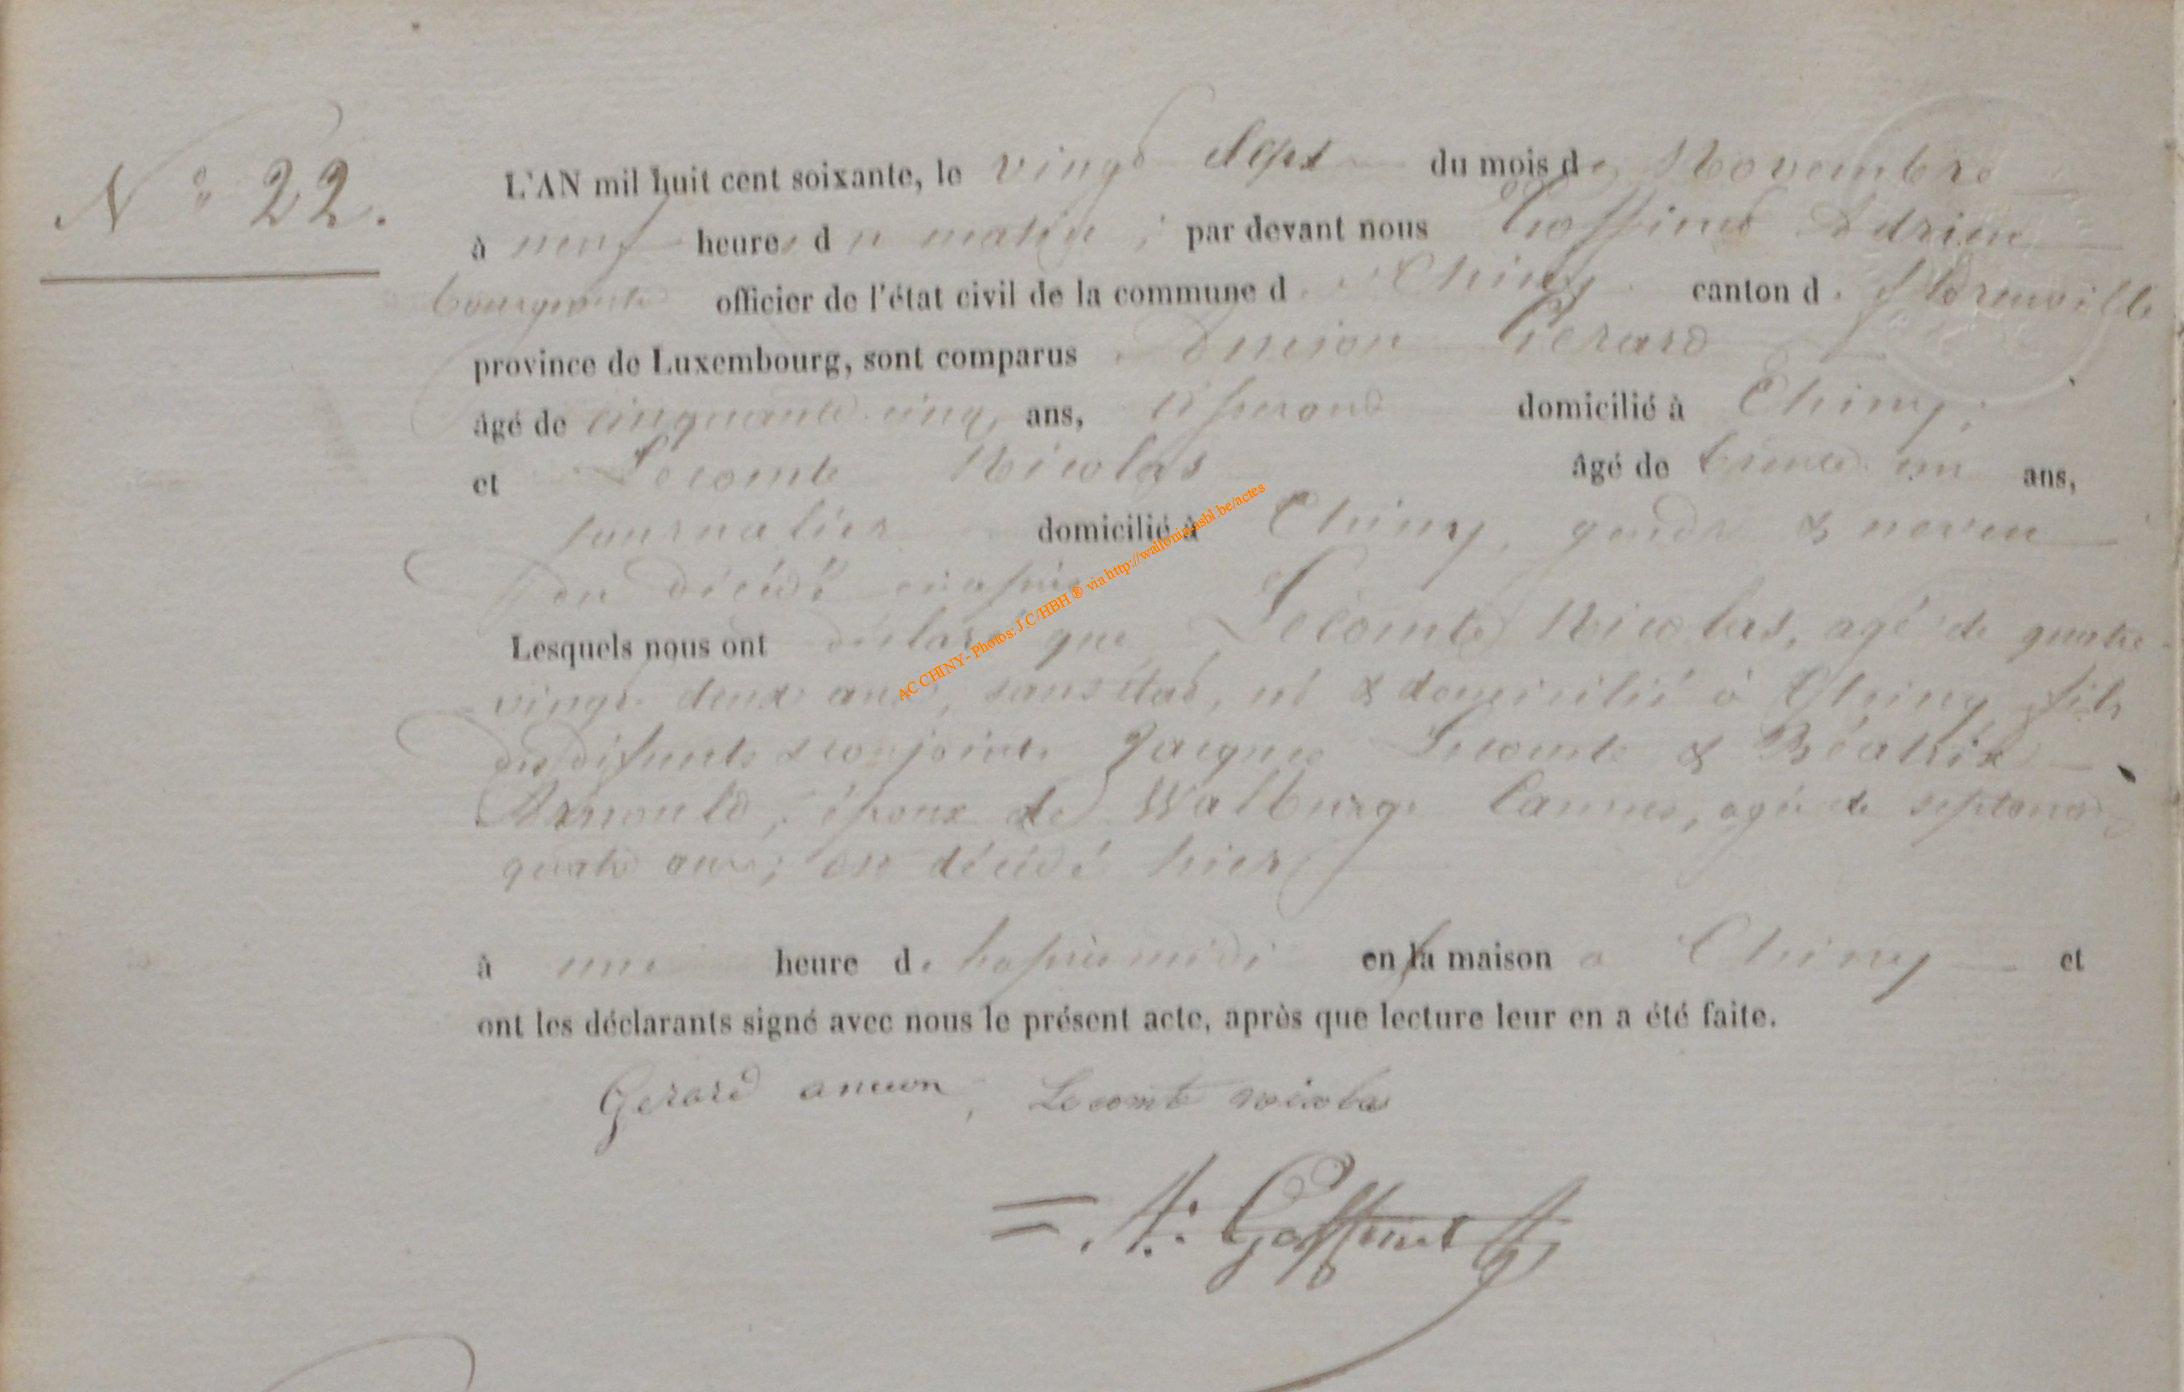 N° 22.
L'AN mil huit cent soixante, le vingt sept du mois de Novembre
à neuf heures du matin, par devant nous Goffinet Adrien
bourgmestre officier de l'état civil de la commune de Chiny canton de
province de Luxembourg, sont comparus Gerard
âgé de cinquante cinq ans, domicilié à Chiny,
et Lecomte Nicolas âgé de trente un ans,
journalier domicilié à Chiny, gendre & neveu
du décédé ci après
Lesquels nous ont déclaré que Lecomte Nicolas, agé de quatre
vingt deux ans, sans état, né & domicilié à Chiny, fils
des défunts & conjoints Jacques Lecomte & Béatrix
Arnould, époux de Walburge agée de septante
quatre ans, est décédé hier
à une heure de l'après midi en la maison a Chiny et
ont les déclarants signé avec nous le présent acte, après que lecture leur en a été faite.
Gerard ancion, Lecomte nicolas
A: Goffinet
AC CHINY - Photos: J.C/HBH ® via http://walfonia-asbl.be/actes